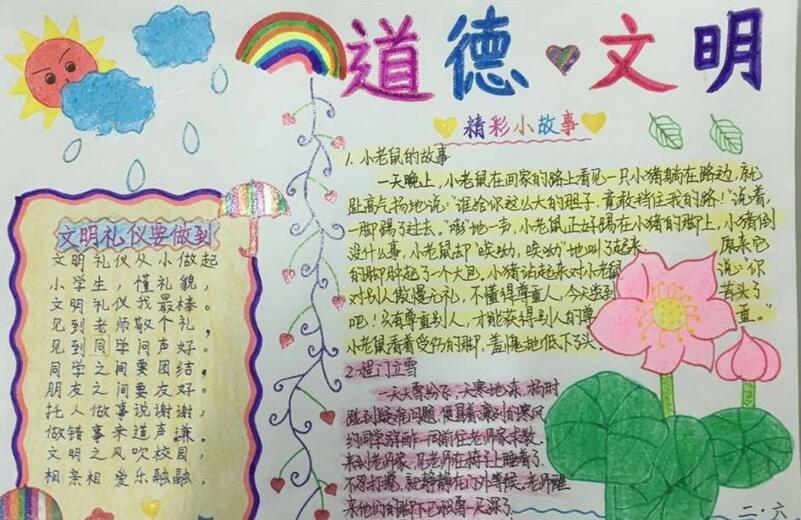 道德文明
精彩小故事
文明礼仪要做到
文明礼仪从小做起
小学生，懂礼貌，
文明礼仪我最棒。
见到老师敬个礼，
见到同学问声好。
同学之间要团结，
朋友之间要友好。
托人做事说谢谢，
做错事来道声谦。
文明之风吹校园，
相亲相爱乐融融。
1.小老鼠的故事
一天晚上，小老鼠在回家的路上看见一只小猪躺在路边，就
趾高气扬地说："谁给你这么大的胆子，竟敢挡住我的路！"说着，
一脚踢了过去。"嘭"地一步，小老鼠正好踢在小猪的脚上，小猪倒
没什么事，小老鼠却"唉呦，唉呦"地叫了起来。原来它
的脚肿起了一个大包，小猪站起来对小老鼠说："你
对别人傲慢无礼，不懂得尊重人，今天尝到苦头了
吧！只有尊重别人，才能获得别人的尊重。"
小老鼠看着受伤的脚，羞愧地低下了头。
2.程门立雪
一天大雪纷飞，天寒地冻，杨时
碰到疑难问题，便冒着凛冽的寒风
约同学一同前往老师家求教，
来到老师家，见老师在椅子上睡着了，
不忍打搅，就静静在门外等候，老师醒
来他们的脚下已
二·六